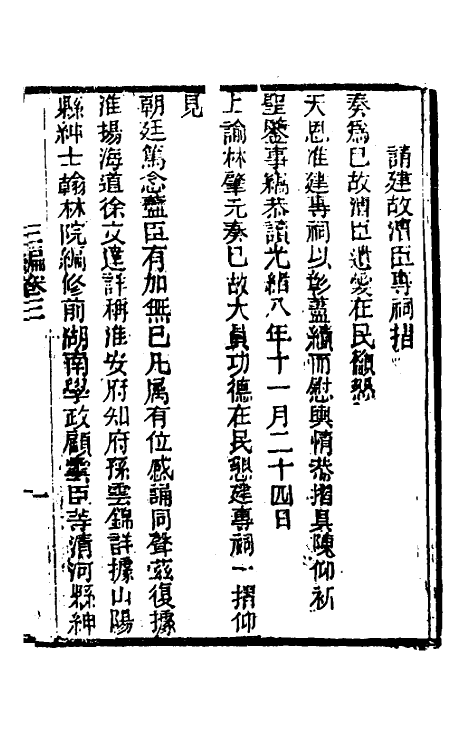 請建故漕臣專祠摺
奏爲已故漕臣遺愛在民籲懇
天恩准建專祠以彰藎績而慰輿情恭摺具陳仰祈
聖鑒事竊恭讀光緒八年十一月二十四日
上諭林肇元奏已故大員功德在民懇建專祠一摺仰
見
朝廷篤念藎臣有加無已凡属有位感誦同聲茲復據
淮揚海道徐文達詳稱淮安府知府孫雲錦詳據山陽
縣紳士翰林院編修前湖南學政顧雲臣等清河縣紳
三編卷三
一